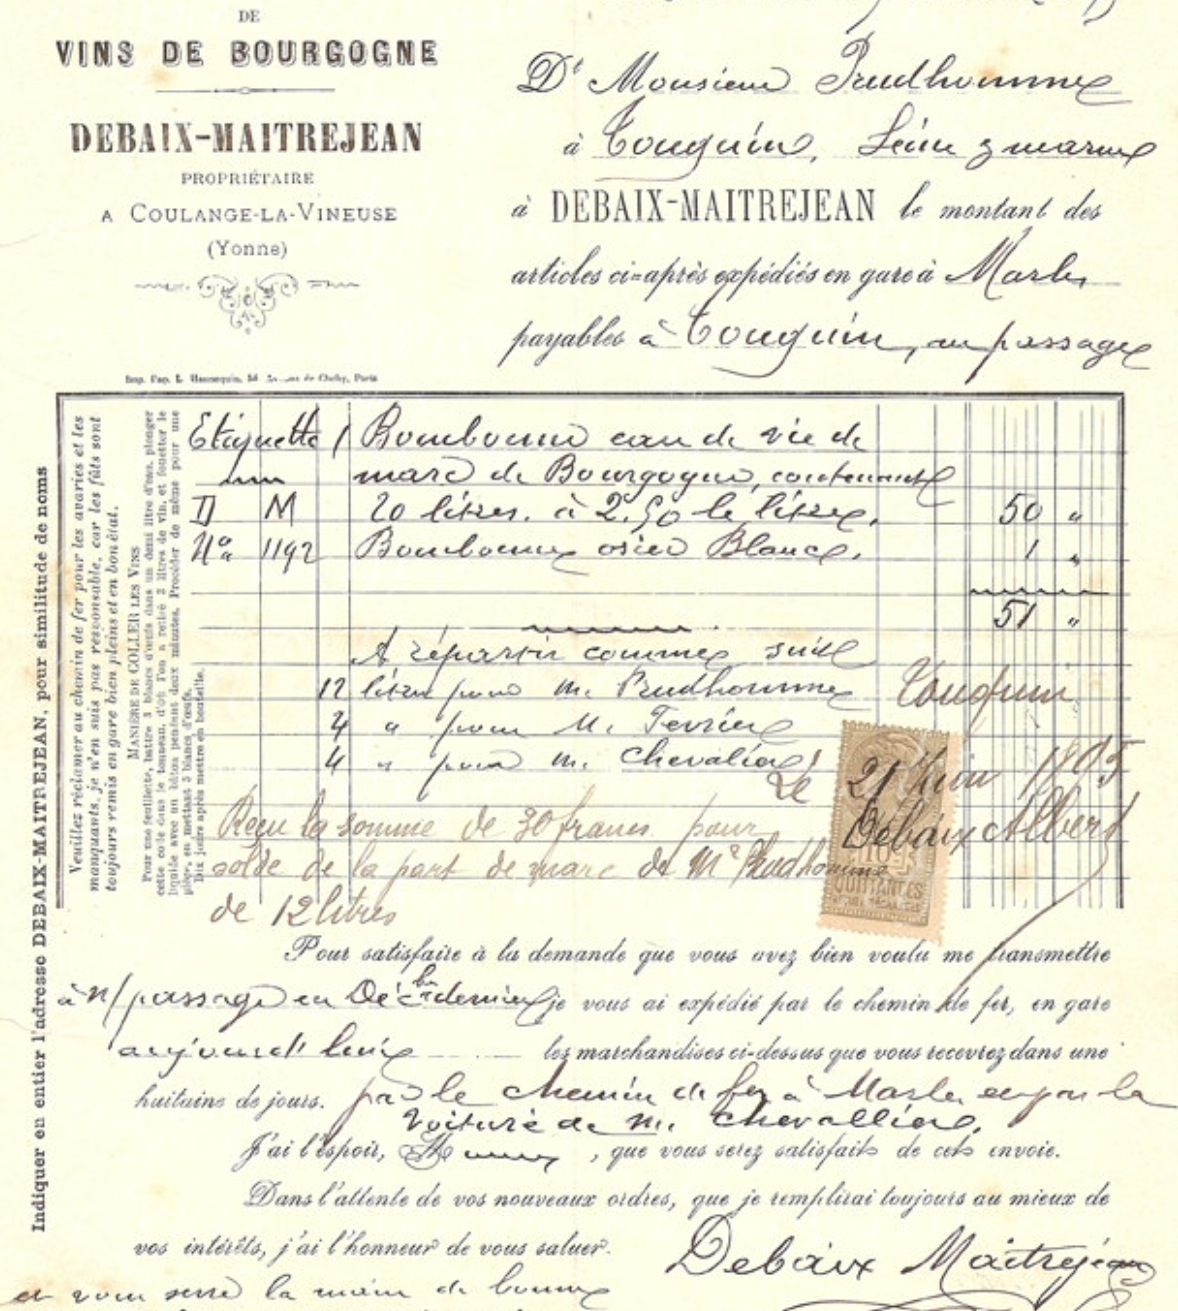 DE
VINS DE BOURGOGNE
DEBAIX-MAITREJEAN
PROPRIÉTAIRE
A COULANGE-LA-VINEUSE
(Yonne)
Dt Monsieur Prudhomme
à Touquin, Seine & marne
à DEBAIX-MAITREJEAN le montant des
articles ci-après expédiés en gare à Marles
payables à Touquin, au passage
Imp. Pap. L. Hennequin, de Clichy, Paris
Indiquer en entier l'adresse DEBAIX-MAITREJEAN, pour similitude de noms
Veuillez réclamer au chemin de fer pour les avaries et les
manquants, je n'en suis pas responsable, car les fûts sont
toujours remis en gare bien pleins et en bon état.
MANIÈRE DE COLLER LES VINS
Pour une feuillette, battre 3 blancs d'œufs dans un demi litre d'eau, plonger
cette colle dans le tonneau, d'où l'on a retiré 2 litres de vin, et fouetter le
liquide avec un bâton pendant deux minutes. Procéder de même pour une
pièce, en mettant 5 blancs d'œufs.
Dix jours après mettre en bouteille.
Etiquette 1 Bombonne eau de vie de
marc de Bourgogne, contenant
D M 20 litres. à 2.50 le litre. 50 "
No 1192 Bombonne osier Blanc. 1 "
51 "
A répartir comme suit
12 litres pour M. Prudhomme Touquin
4 " pour M. Ferrier
4 " pour M. Chevalier
Le 21 Juin 1895
Debaix Albert
QUITTANCES
Reçu la somme de 30 francs pour
solde de la part de marc de Mr Prudhomme
de 12 litres
Pour satisfaire à la demande que vous avez bien voulu me transmettre
à n/ passage en Décbre dernier je vous ai expédié par le chemin de fer, en gare
aujourd'hui les marchandises ci-dessus que vous recevrez dans une
huitaine de jours. par le chemin de fer à Marles et par la
voiture de M. Chevallier.
J'ai l'espoir, M , que vous serez satisfait de cet envoie.
Dans l'attente de vos nouveaux ordres, que je remplirai toujours au mieux de
vos intérêts, j'ai l'honneur de vous saluer.
Debaix Maitrejean
et vous serre la main de bonne